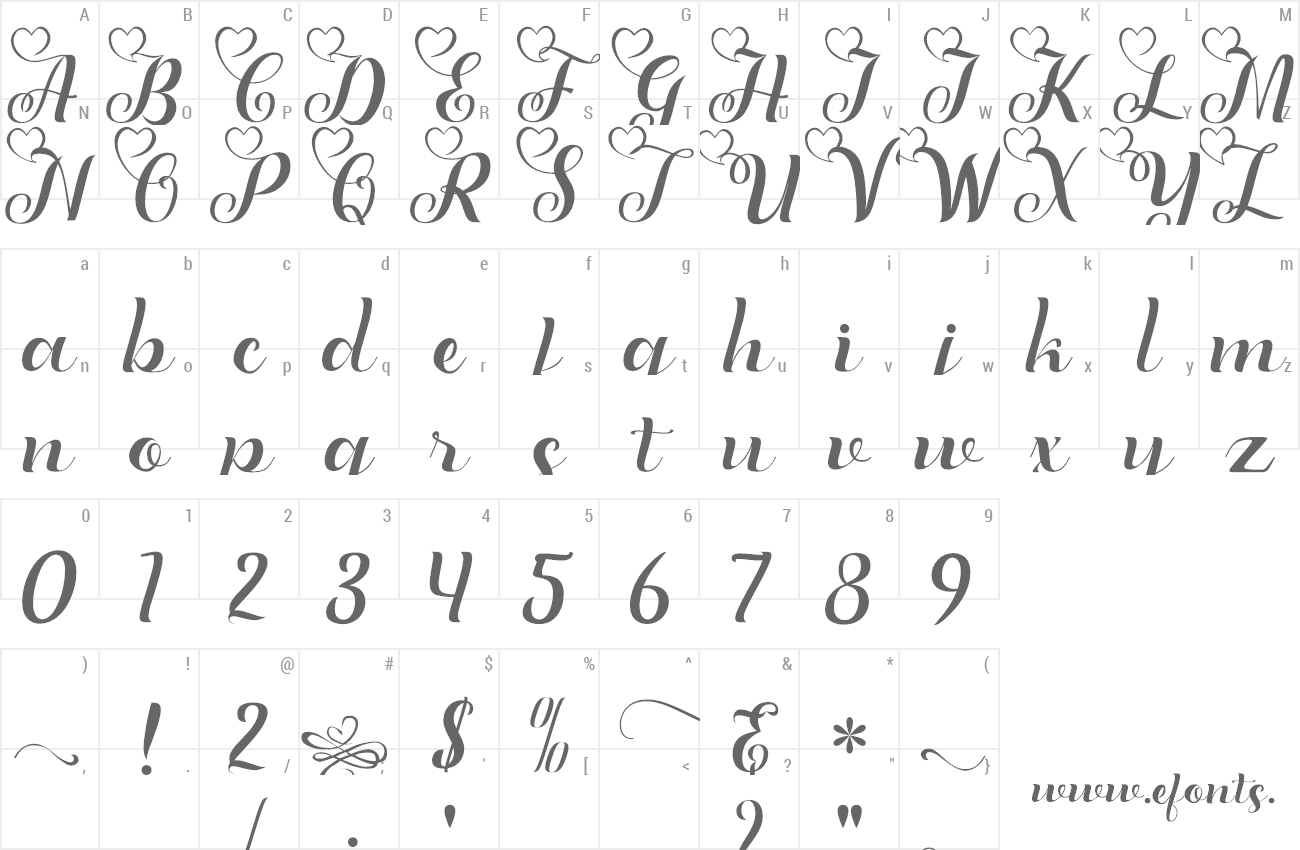 A B C D E F G H I J K L M
A B C D E F G H I J K L M
N O P Q R S T U V W X Y Z
N O P Q R S T U V W X Y Z
a b c d e f g h i j k l m
a b c d e f g h i j k l m
n o p q r s t u v w x y z
n o p q r s t u v w x y z
0 1 2 3 4 5 6 7 8 9
0 1 2 3 4 5 6 7 8 9
) ! @ # $ % ^ & * (
! 2 $ % & *
, . / ; ' [ < ? " }
/ ; ' ? "
www.efonts.